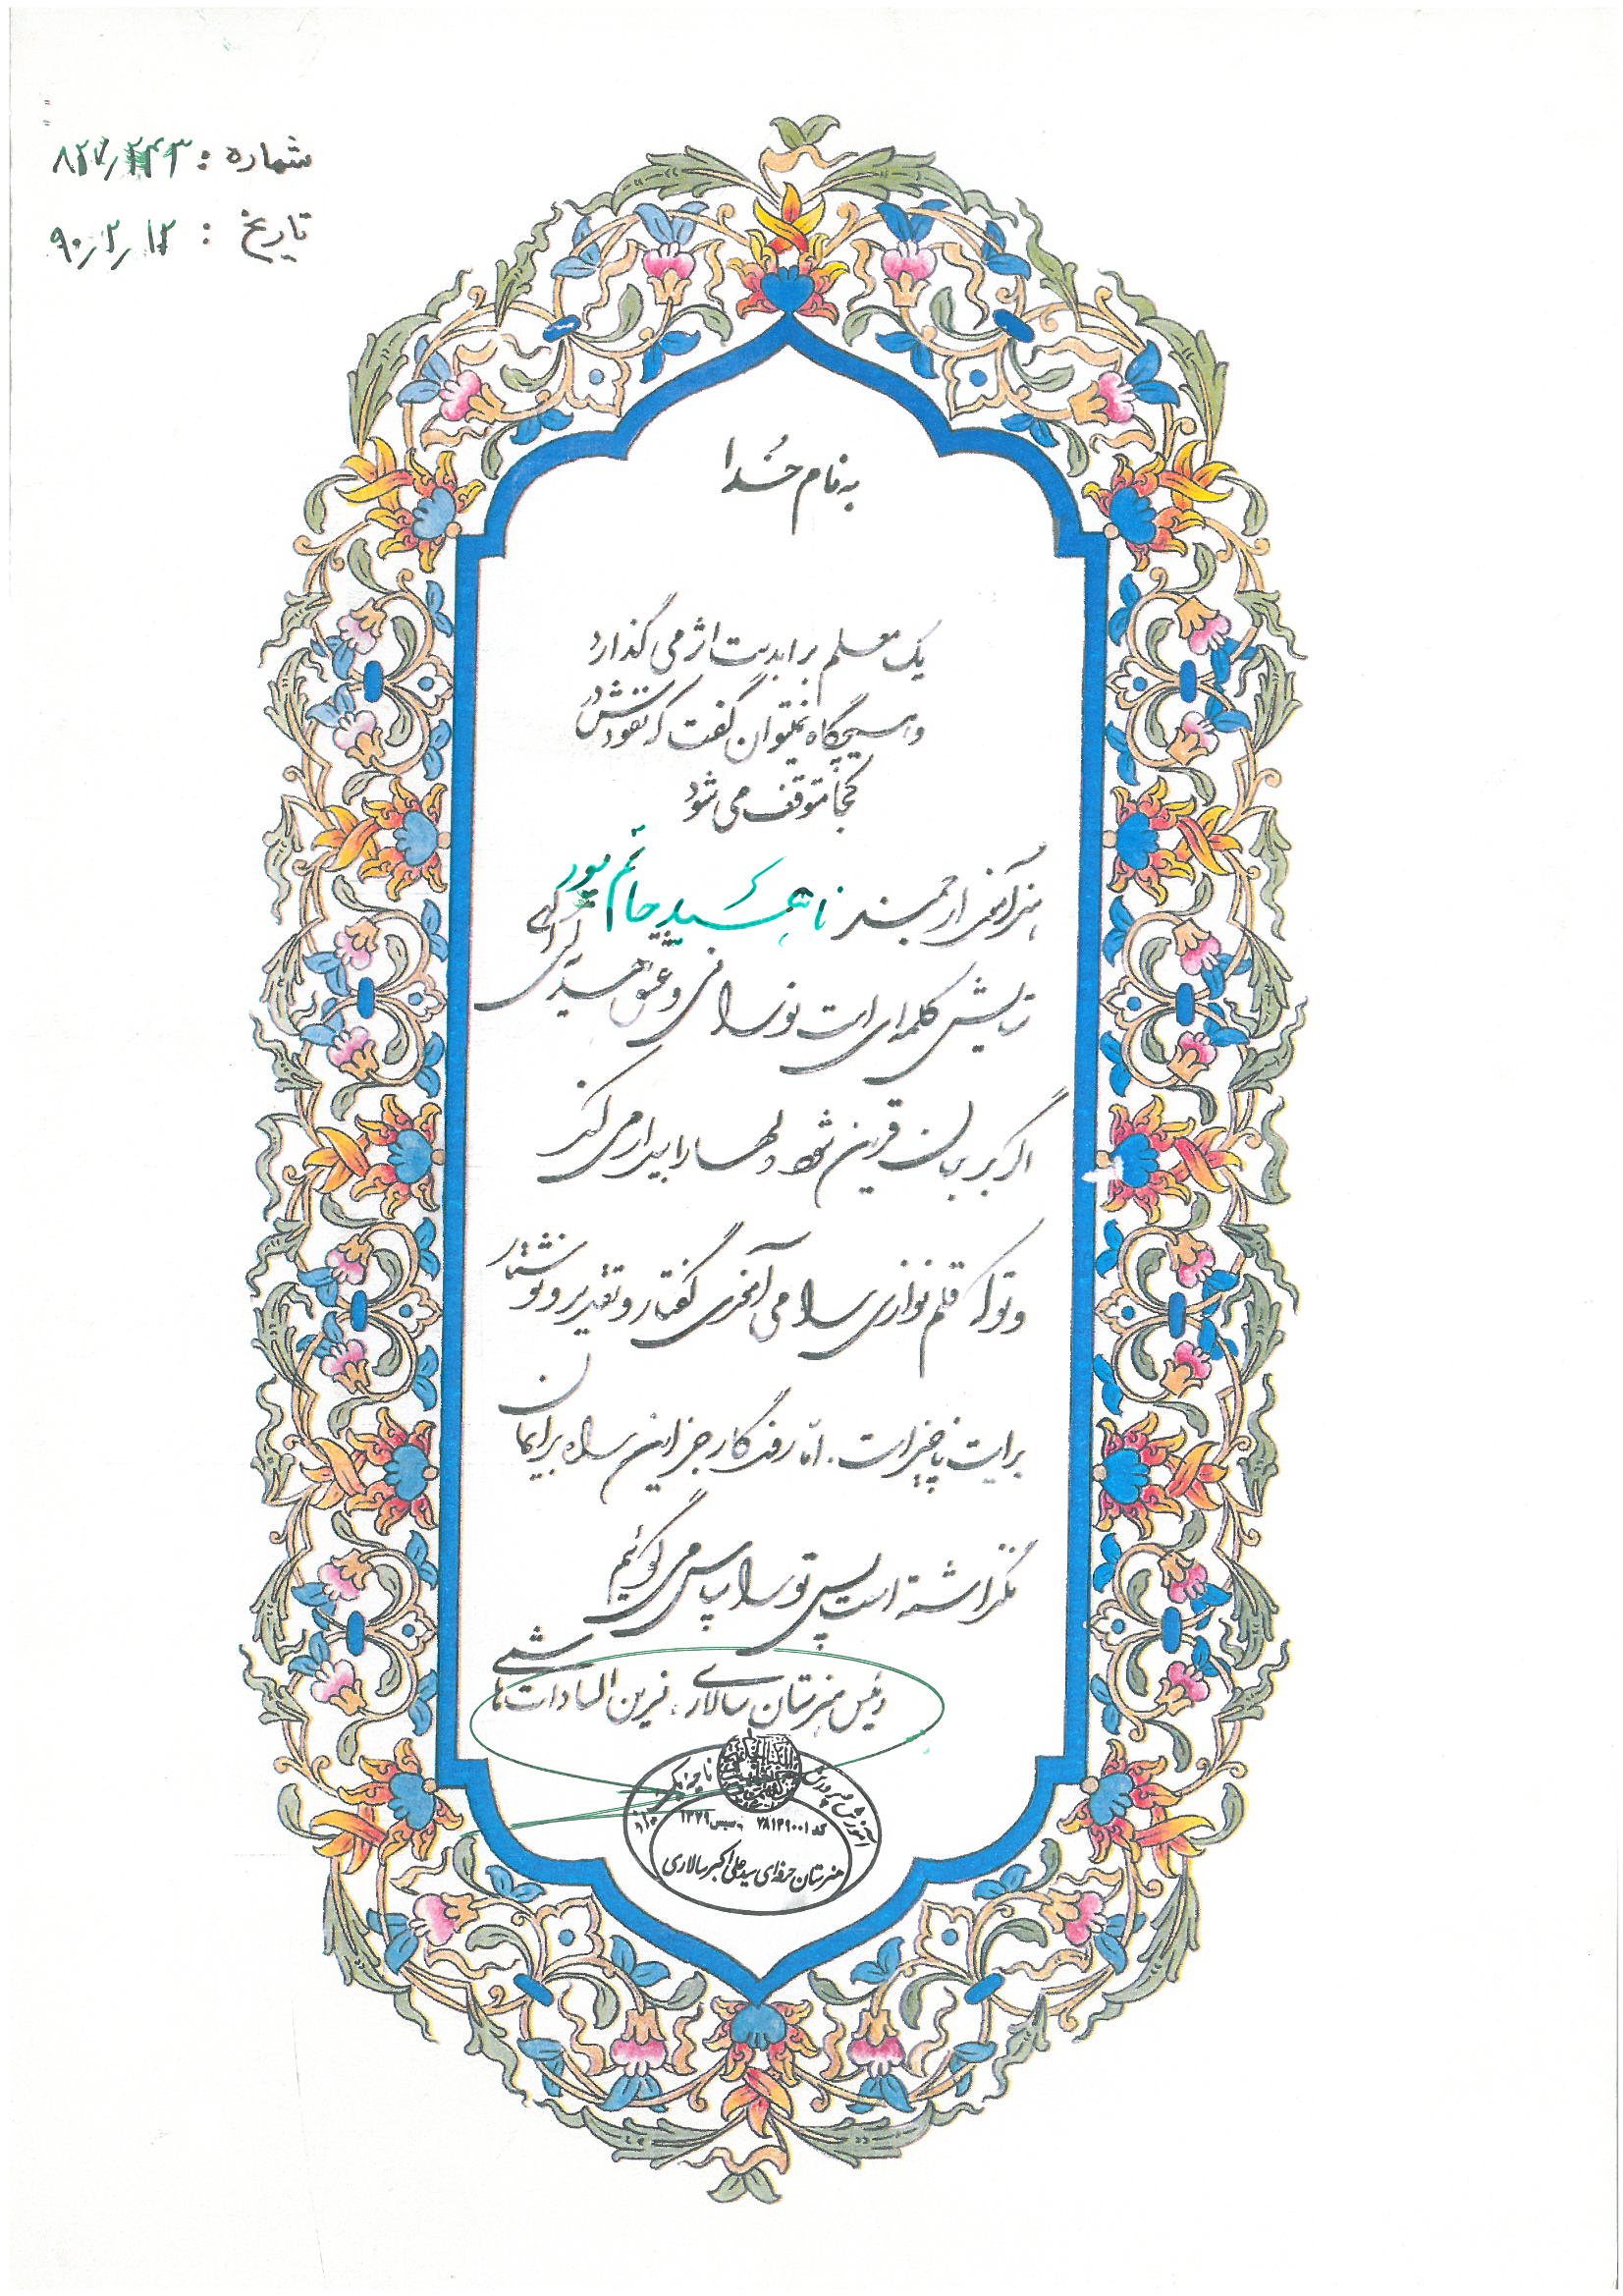 شماره : ۸۲۷/۲۴۳
تاریخ : ۹۰/۲/۱۲
به نام خدا
یک معلم بر ابدیت اثر می گذارد
و هیچگاه نمیتوان گفت که نفوذش در
کجا متوقف می شود
هنرآموز ارجمند ناهید حاتم پور
ستایش کلمه ای است نورانی و عشق هدیه ای
اگر بر زبان قرین شود دلها را بیدار می کند
و تو که قلم نوازی را می آموزی گفتار و تقدیر و نوشتار
برایت ناچیز است . امّا روزگار جز این راه برایمان
نگذاشته است پس تو را سپاس می گوئیم
رئیس هنرستان سالاری ، نسرین السادات هاشمی
آموزش و پرورش ناحیه یک
کد ۲۸۱۴۹۰۰۱ تاسیس ۱۳۲۹
هنرستان حرفه ای سید علی اکبر سالاری